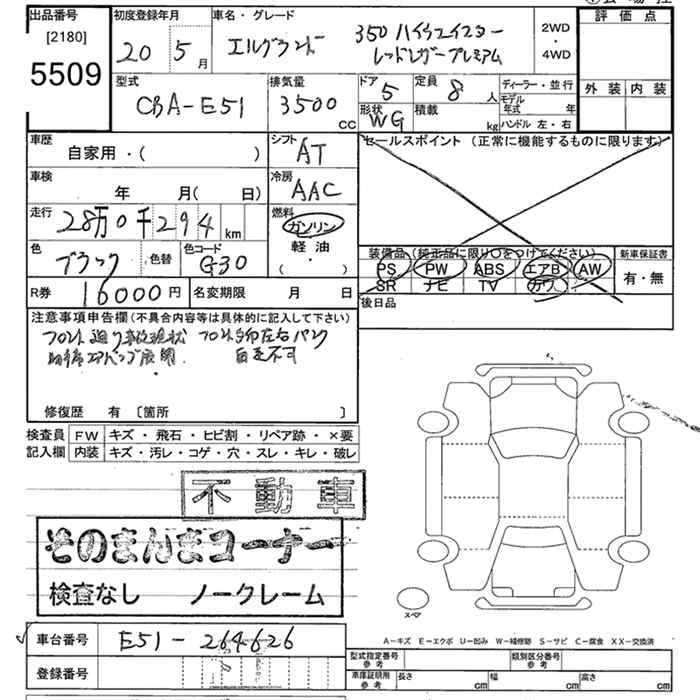 出品番号 初度登録年月 車名・グレード 評価点
[2180] 20 5月 エルグランド 350ハイウェイスター 2WD
5509 レッドレザープレミアム 4WD
型式 排気量 ドア 5 定員 8人 ディーラー・並行 外装 内装
CBA-E51 3500 CC 形状 WG 積載 kg モデル年式 年
ハンドル 左・右
車歴 シフト セールスポイント (正常に機能するものに限ります)
自家用・( ) AT
車検 冷房
年 月( 日) AAC
走行 燃料
28万0千294 km ガソリン
色 ブラック 色替 色コード G30 軽油 装備品(純正品に限り○をつけてください) 新車保証書
( ・ ) PS PW ABS エアB AW 有・無
SR ナビ TV カワ
R券 16000円 名変期限 月 日 後日品
注意事項申告欄(不具合内容等は具体的に記入して下さい)
フロント廻り事故現状 フロント左右パンク
エアバッグ展開 自走不可
修復歴 有 [箇所 ]
検査員 FW キズ・飛石・ヒビ割・リペア跡・×要
記入欄 内装 キズ・汚レ・コゲ・穴・スレ・キレ・破レ
不動車
そのまんまコーナー
検査なし ノークレーム
スペア
A-キズ E-エクボ U-凹み W-補修跡 S-サビ C-腐食 XX-交換済
車台番号 E51-264626
型式指定番号 参考 類別区分番号 参考
登録番号 車庫証明用 参考 長さ cm 幅 cm 高さ cm